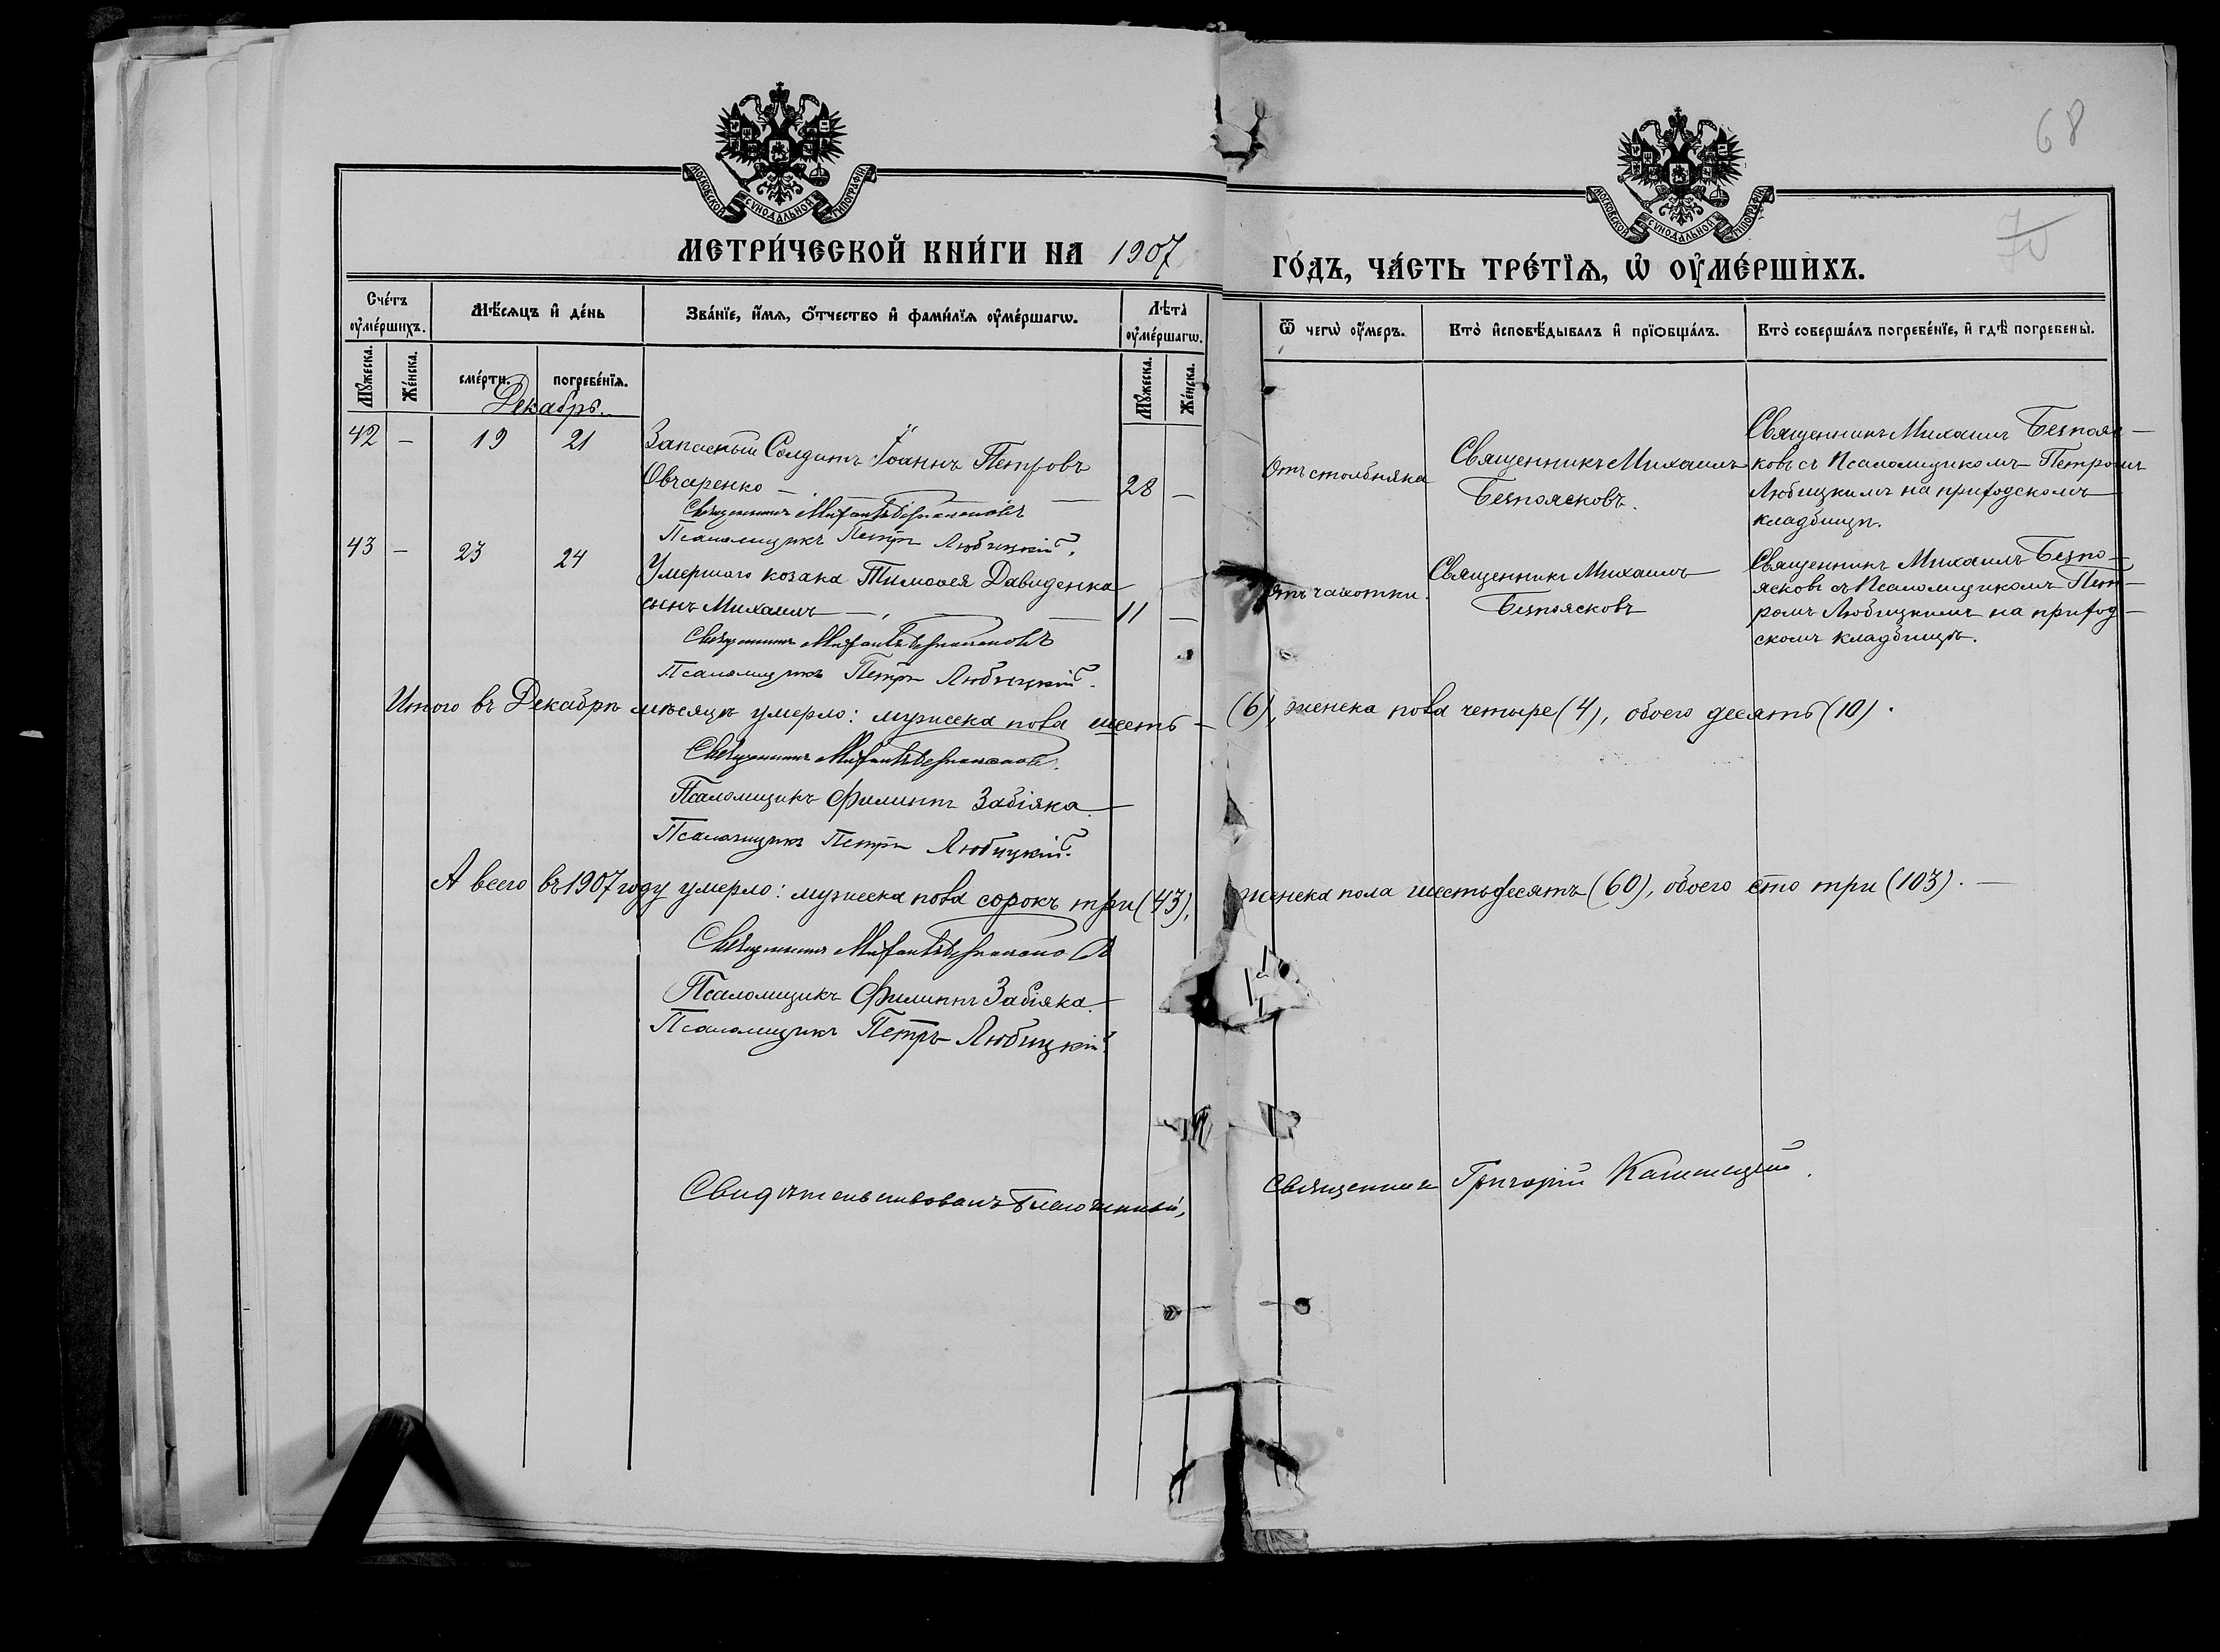 68
70
МОСКОВСКОЙ СУНОДАЛЬНОЙ ТИПОГРАФІИ
МОСКОВСКОЙ СУНОДАЛЬНОЙ ТИПОГРАФІИ
МЕТРИ́ЧЕСКОЙ КНИ́ГИ НА 1907 ГО́ДЪ, ЧА́СТЬ ТРЕ́ТЇѦ, Ѡ҆ ОУ҆МЕ́РШИХЪ.
Сче́тъ оу҆ме́ршихъ.
Мѣ́сѧцъ и҆ де́нь
Зва́нїе, и҆́мѧ, ѻ҆́тчество и҆ фами́лїѧ оу҆ме́ршагѡ.
Лѣ́та оу҆ме́ршагѡ.
Ѿ чегѡ̀ оу҆́меръ.
Кто̀ и҆сповѣ́дывалъ и҆ прїѻбща́лъ.
Кто̀ соверша́лъ погребе́нїе, и҆ гдѣ̀ погребены̀.
Мꙋ́жеска.
Же́нска.
сме́рти.
погребе́нїѧ.
Мꙋ́жеска.
Же́нска.
Декабрь.
42 — 19 21
Запасный Солдатъ Іоаннъ Петровъ
Овчаренко — 28 —
Священникъ Михаилъ Безпоясковъ
Псаломщикъ Петръ Любицкій.
Отъ столбняка
Священникъ Михаилъ
Безпоясковъ.
Священникъ Михаилъ Безпояс-
ковъ съ Псаломщикомъ Петромъ
Любицкимъ на приходскомъ
кладбищѣ.
43 — 23 24
Умершаго козака Тимоѳея Давиденка
сынъ Михаилъ — 11 —
Священникъ Михаилъ Безпоясковъ
Псаломщикъ Петръ Любицкій.
Отъ чахотки.
Священникъ Михаилъ
Безпоясковъ
Священникъ Михаилъ Безпо-
ясковъ съ Псаломщикомъ Пет-
ромъ Любицкимъ на приход-
скомъ кладбищѣ.
Итого въ Декабрѣ мѣсяцѣ умерло: мужеска пола шесть — (6), женска пола четыре (4), обоего десять (10).
Священникъ Михаилъ Безпоясковъ.
Псаломщикъ Филиппъ Забіяка.
Псаломщикъ Петръ Любицкій.
А всего въ 1907 году умерло: мужеска пола сорокъ три (43), женска пола шестьдесятъ (60), обоего сто три (103). —
Священникъ Михаилъ Безпоясковъ
Псаломщикъ Филиппъ Забіяка.
Псаломщикъ Петръ Любицкій.
Свидѣтельствовалъ Благочинный, Священникъ Григорій